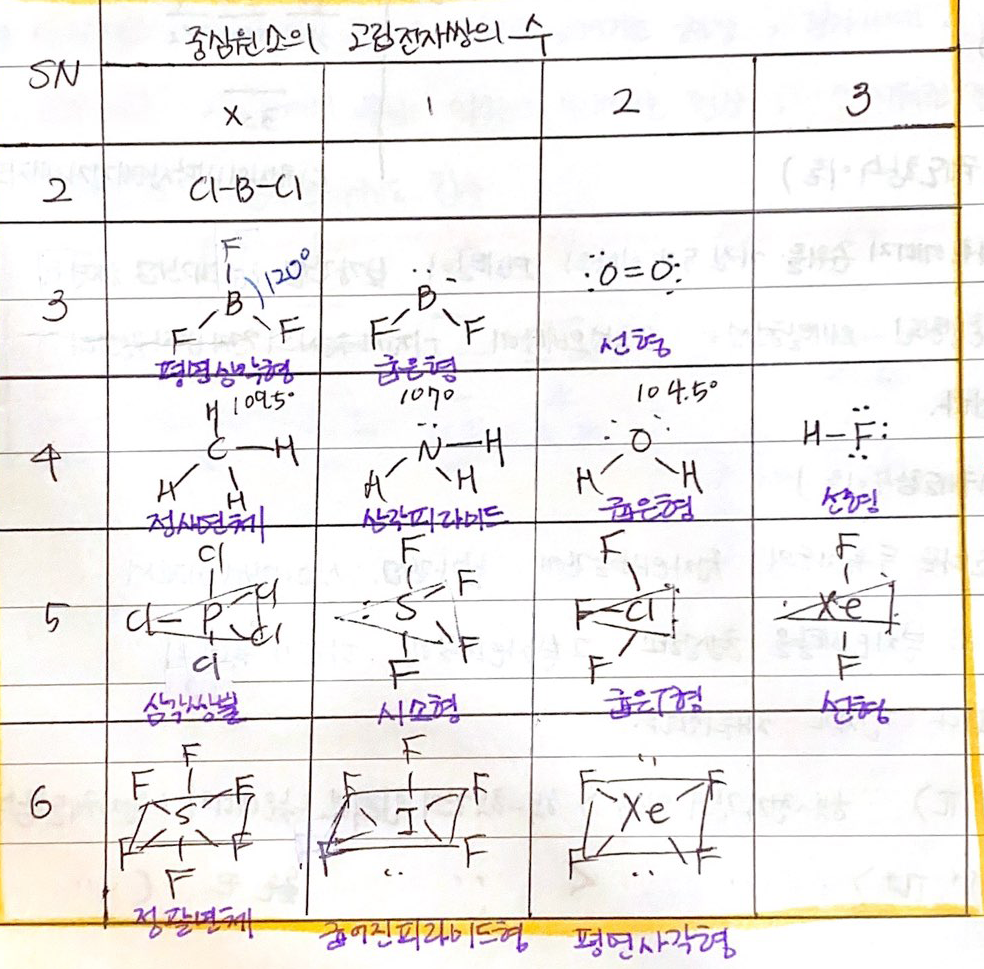 중심원소의 고립전자쌍의 수
SN
x 1 2 3
2 Cl-B-Cl
3
F
B 120°
F F
평면삼각형
B -
F F
굽은형
:O=O:
선형
4
H 109.5°
C-H
H H
정사면체
107°
N-H
H H
삼각피라미드
104.5°
:O:
H H
굽은형
H-F:
선형
5
Cl
Cl-P Cl
Cl
Cl
삼각쌍뿔
F
: S F
F
F
시소형
F
F-Cl :
F
굽은T형
F
: Xe :
F
선형
6
F
F F
S
F F
F
정팔면체
F
F F
I
F F
굽어진피라미드형
F F
Xe
F F
평면사각형